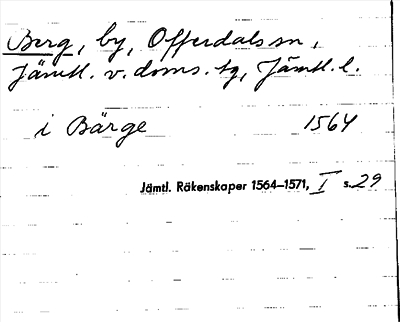 Berg, by, Offerdals sn,
Jämtl. v. doms. tg, Jämtl. l.
i Bärge 1564
Jämtl. Räkenskaper 1564–1571, I s. 29